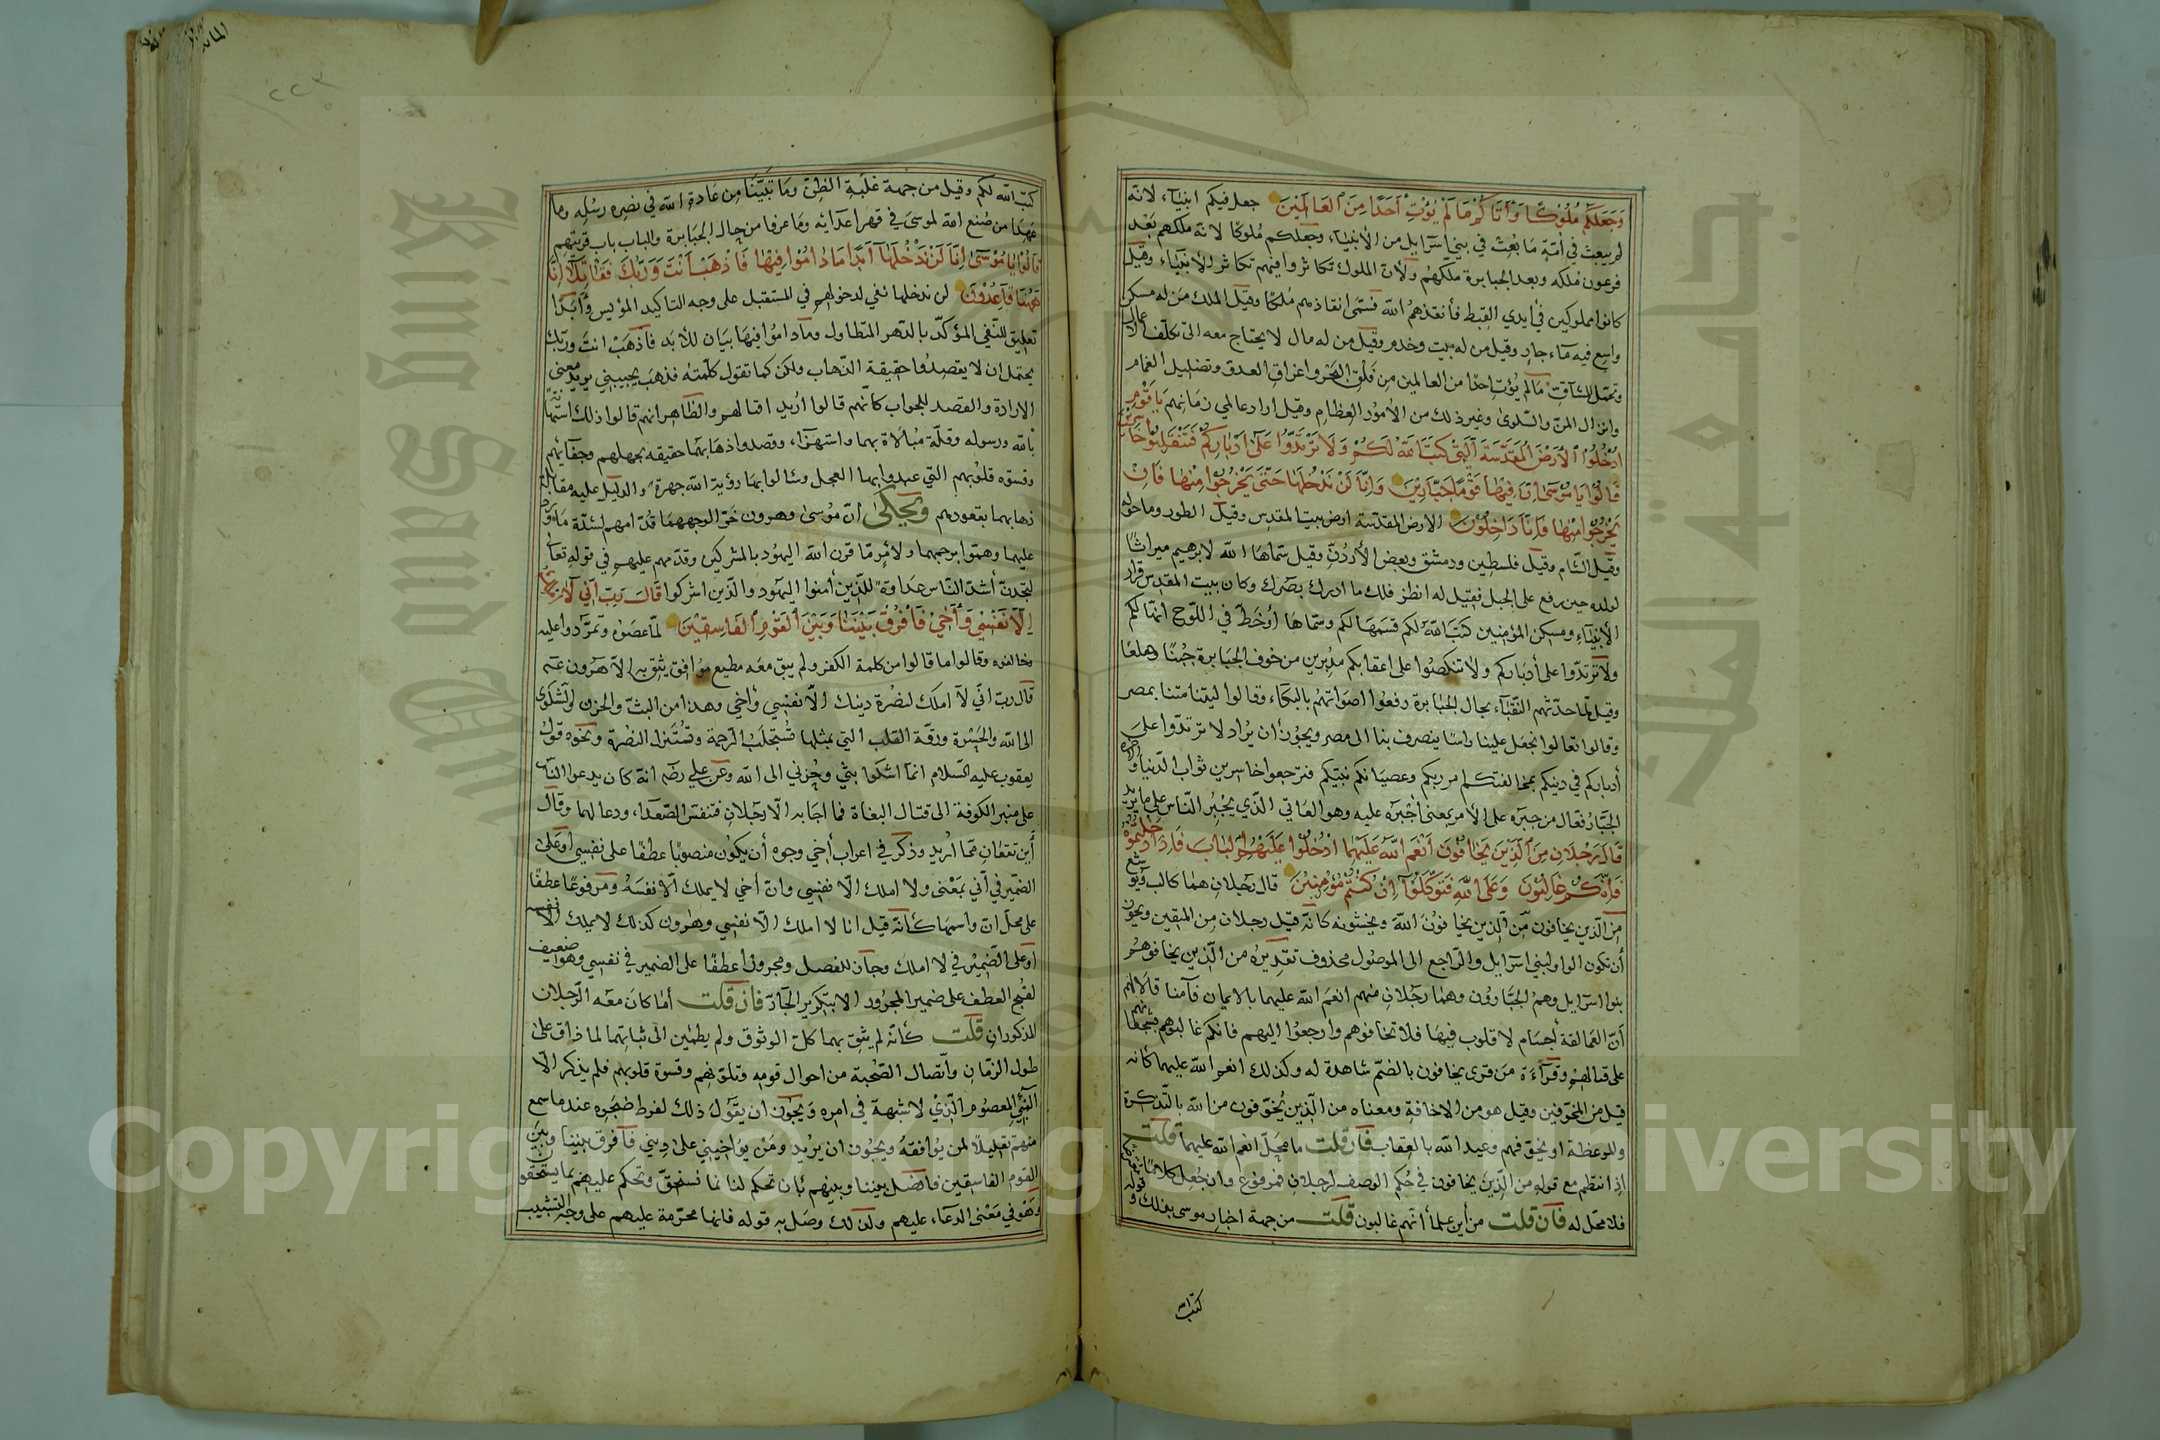 وَجَعَلَكُمْ مُلُوكًا وَآتَاكُمْ مَا لَمْ يُؤْتِ أَحَدًا مِنَ العَالَمِينَ جعل فيكم انبياء لانه
لم يبعث في أمّة ما بعث في بني اسرائيل من الأنبياء وجعلكم ملوكًا لانه ملكهم بعد
فرعون ملكه وبعد الجبابرة ملكهم ولأن الملوك تكاثروا فيهم تكاثر الأنبياء وقيل
كانوا مملوكين في أيدي القبط فأنقذهم الله فسمى انقاذهم ملكًا وقيل الملك من له مسكن
واسع فيه ماء جار وقيل من له بيت وخدم وقيل من له مال لا يحتاج معه الى تكلف الاعمال
وتحمل المشاق ما لم يؤت احدا من العالمين من فلق البحر واغراق العدو وتظليل الغمام
وانزال المن والسلوى وغير ذلك من الأمور العظام وقيل اراد عالمي زمانهم يَا قَوْمِ
ادْخُلُوا الأَرْضَ المُقَدَّسَةَ الَّتِي كَتَبَ اللهُ لَكُمْ وَلَا تَرْتَدُّوا عَلَى أَدْبَارِكُمْ فَتَنْقَلِبُوا خَاسِرِينَ
قَالُوا يَا مُوسَى إِنَّ فِيهَا قَوْمًا جَبَّارِينَ وَإِنَّا لَنْ نَدْخُلَهَا حَتَّى يَخْرُجُوا مِنْهَا فَإِنْ
يَخْرُجُوا مِنْهَا فَإِنَّا دَاخِلُونَ الارض المقدسة ارض بيت المقدس وقيل الطور وما حوله
وقيل الشام وقيل فلسطين ودمشق وبعض الأردن وقيل سماها الله لابرهيم ميراثًا
لولده حين رفع على الجبل فقيل له انظر فلك ما ادرك بصرك وكان بيت المقدس قرار
الأنبياء ومسكن المؤمنين كتب الله لكم قسمها لكم وسماها أو خط في اللوح انها لكم
ولا ترتدوا على أدباركم ولا تنكصوا على اعقابكم مدبرين من خوف الجبابرة جبنًا وهلعًا
وقيل لما حدثهم النقباء بحال الجبابرة رفعوا اصواتهم بالبكاء وقالوا ليتنا متنا بمصر
وقالوا تعالوا نجعل علينا راسًا ينصرف بنا الى مصر ويجوز أن يراد لا ترتدوا على
أدباركم في دينكم بمخالفتكم امر ربكم وعصيانكم نبيكم فترجعوا خاسرين ثواب الدنيا والاخرة
الجبار فعال من جبره على الأمر بمعنى أجبره عليه وهو العاتي الذي يجبر الناس على ما يريد
قَالَ رَجُلَانِ مِنَ الَّذِينَ يَخَافُونَ أَنْعَمَ اللهُ عَلَيْهِمَا ادْخُلُوا عَلَيْهِمُ البَابَ فَإِذَا دَخَلْتُمُوهُ
فَإِنَّكُمْ غَالِبُونَ وَعَلَى اللهِ فَتَوَكَّلُوا إِنْ كُنْتُمْ مُؤْمِنِينَ قال رجلان هما كالب ويوشع
من الذين يخافون من الذين يخافون الله ويخشونه كانه قيل رجلان من المتقين ويجوز
أن تكون الواو لبني اسرائيل والراجع الى الموصول محذوف تقديره من الذين يخافوهم
بنو اسرائيل وهم الجبارون وهما رجلان منهم انعم الله عليهما بالايمان فآمنا قالا لهم
أن العمالقة أجسام لا قلوب فيها فلا تخافوهم وارجعوا اليهم فانكم غالبوهم يشجعانهم
على قتالهم وقراءة من قرى يخافون بالضم شاهدة له وكذلك انعم الله عليهما كأنه
قيل من المخوفين وقيل هو من الاخافة ومعناه من الذين يخوفون من الله بالتذكرة
والموعظة او يخوفهم وعيد الله بالعقاب فان قلت ما محل انعم الله عليهما قلت
إذا انتظم مع قوله من الذين يخافون في حكم الوصف لرجلان فمرفوع وان جعل كلامًا معترضًا
فلا محل له فان قلت من أين علما أنهم غالبون قلت من جهة اخبار موسى بذلك وقوله
كتب الله
كتب الله لكم وقيل من جهة غلبة الظن وما تبينا من عادة الله في نصرة رسله وما
عهدا من صنع الله لموسى في قهر اعدائه وما عرفا من حال الجبابرة والباب باب قريتهم
قَالُوا يَا مُوسَى إِنَّا لَنْ نَدْخُلَهَا أَبَدًا مَا دَامُوا فِيهَا فَاذْهَبْ أَنْتَ وَرَبُّكَ فَقَاتِلَا إِنَّا
هَهُنَا قَاعِدُونَ لن ندخلها نفي لدخولهم في المستقبل على وجه التاكيد المؤيس وأبدا
تعليق للنفي المؤكد بالدهر المتطاول وما داموا فيها بيان للأبد فاذهب انت وربك
يحتمل ان لا يقصدوا حقيقة الذهاب ولكن كما تقول كلمته فذهب يجيبني يريد معنى
الارادة والقصد للجواب كانهم قالوا اريد اقتالهم والظاهر انهم قالوا ذلك استهانة
بالله ورسوله وقلة مبالاة بهما واستهزاء وقصدوا ذهابهما حقيقة بجهلهم وجفائهم
وقسوة قلوبهم التي عبدوا بها العجل وسألوا بها رؤية الله جهرة والدليل عليه مقابلة
ذهابهما بقعودهم ويحكى أن موسى وهرون خرّا لوجههما قدامهم لشدة ما ورد
عليهما وهموا برجمهما ولأمر ما قرن الله اليهود بالمشركين وقدمهم عليهم في قوله تعالى
لتجدن أشد الناس عداوة للذين آمنوا اليهود والذين اشركوا قَالَ رَبِّ إِنِّي لَا أَمْلِكُ
إِلَّا نَفْسِي وَأَخِي فَافْرُقْ بَيْنَنَا وَبَيْنَ القَوْمِ الفَاسِقِينَ لما عصوه وتمردوا عليه
وخالفوه وقالوا ما قالوا من كلمة الكفر ولم يبق معه مطيع موافق يثق به إلا هرون عم
قال رب اني لا املك لنصرة دينك الا نفسي وأخي وهذا من البث والحزن والشكوى
الى الله والحسرة ورقة القلب التي بمثلها تستجلب الرحمة وتستنزل النصرة ونحوه قول
يعقوب عليه السلام انما اشكوا بثي وحزني الى الله وعن علي رضه انه كان يدعو الناس
على منبر الكوفة الى قتال البغاة فما اجابه الا رجلان فتنفس الصعداء ودعا لهما وقال
أين تقعان مما اريد وذكر في اعراب أخي وجوه أن يكون منصوبًا عطفًا على نفسي أو على
الضمير في أني بمعنى ولا املك الا نفسي وان أخي لا يملك الا نفسه ومرفوعًا عطفًا
على محل ان واسمها كأنه قيل انا لا املك الا نفسي وهرون كذلك لا يملك الا نفسه
أو على الضمير في لا املك وجاز للفصل ومجرورًا عطفًا على الضمير في نفسي وهو ضعيف
لقبح العطف على ضمير المجرور الا بتكرير الجار فان قلت أما كان معه الرجلان
المذكوران قلت كأنه لم يثق بهما كل الوثوق ولم يطمئن الى ثباتهما لما ذاق على
طول الزمان واتصال الصحبة من احوال قومه وتلونهم وقسوة قلوبهم فلم يذكر الا
النبي المعصوم الذي لا شبهة في امره ويجوز ان يقول ذلك لفرط ضجره عندما سمع
منهم تقليلًا لمن يوافقه ويجوز ان يريد ومن يواخيني على ديني فافرق بيننا وبين
القوم الفاسقين فافصل بيننا وبينهم بأن تحكم لنا بما نستحق وتحكم عليهم بما يستحقون
وهو في معنى الدعاء عليهم ولذلك وصل به قوله فانها محرمة عليهم على وجه التسبيب
Copyright © King Saud University
King Saud University
جامعة الملك سعود